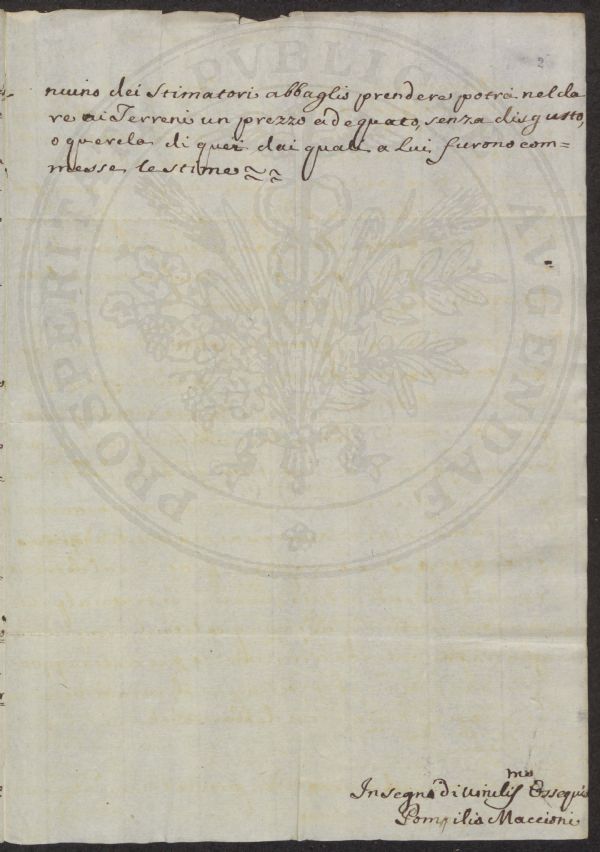 2
niuno dei Stimatori abbaglio prendere potrà nel da
re ai Terreni un prezzo adequato, senza disgusto,
o querela di quei dai quali a Lui furono com=
messe le stime
In segno di umilis^mo Ossequio
Pompilio Maccioni
PROSPERITATI PVBLICAE AVGENDAE